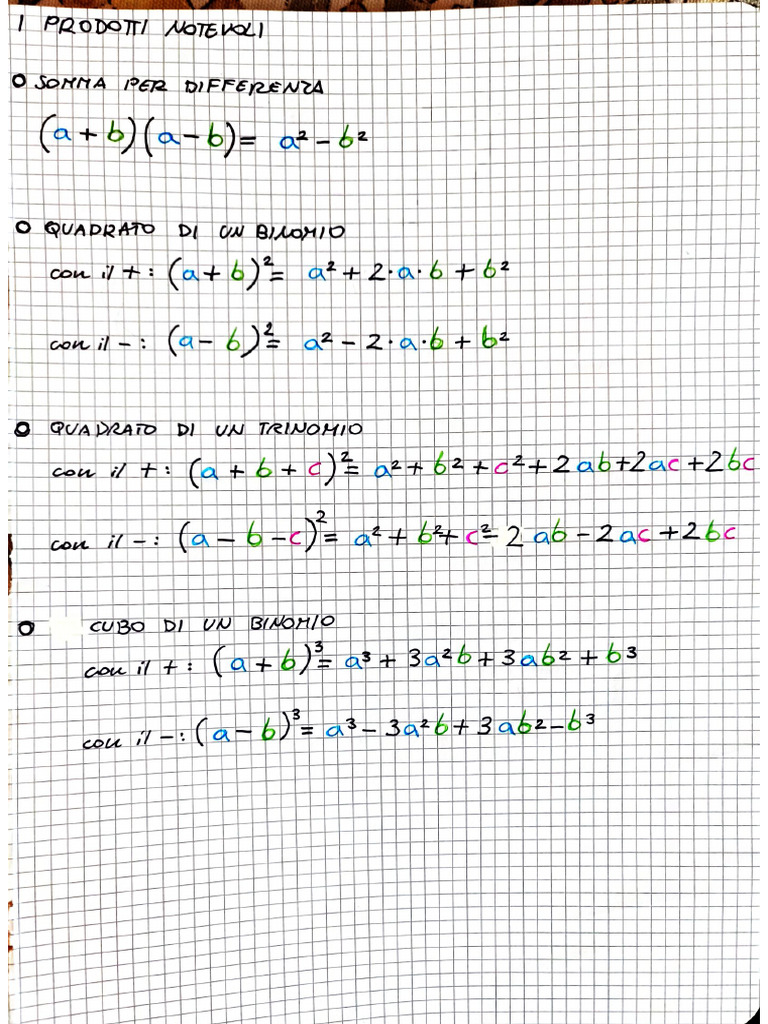 I PRODOTTI NOTEVOLI
SOMMA PER DIFFERENZA
(a+b)(a-b)= a²-b²
QUADRATO DI UN BINOMIO
con il +: (a+b)²= a²+2·a·b+b²
con il -: (a-b)²= a²-2·a·b+b²
QUADRATO DI UN TRINOMIO
con il +: (a+b+c)²= a²+b²+c²+2ab+2ac+2bc
con il -: (a-b-c)²= a²+b²+c²-2ab-2ac+2bc
CUBO DI UN BINOMIO
con il +: (a+b)³= a³+3a²b+3ab²+b³
con il -: (a-b)³= a³-3a²b+3ab²-b³